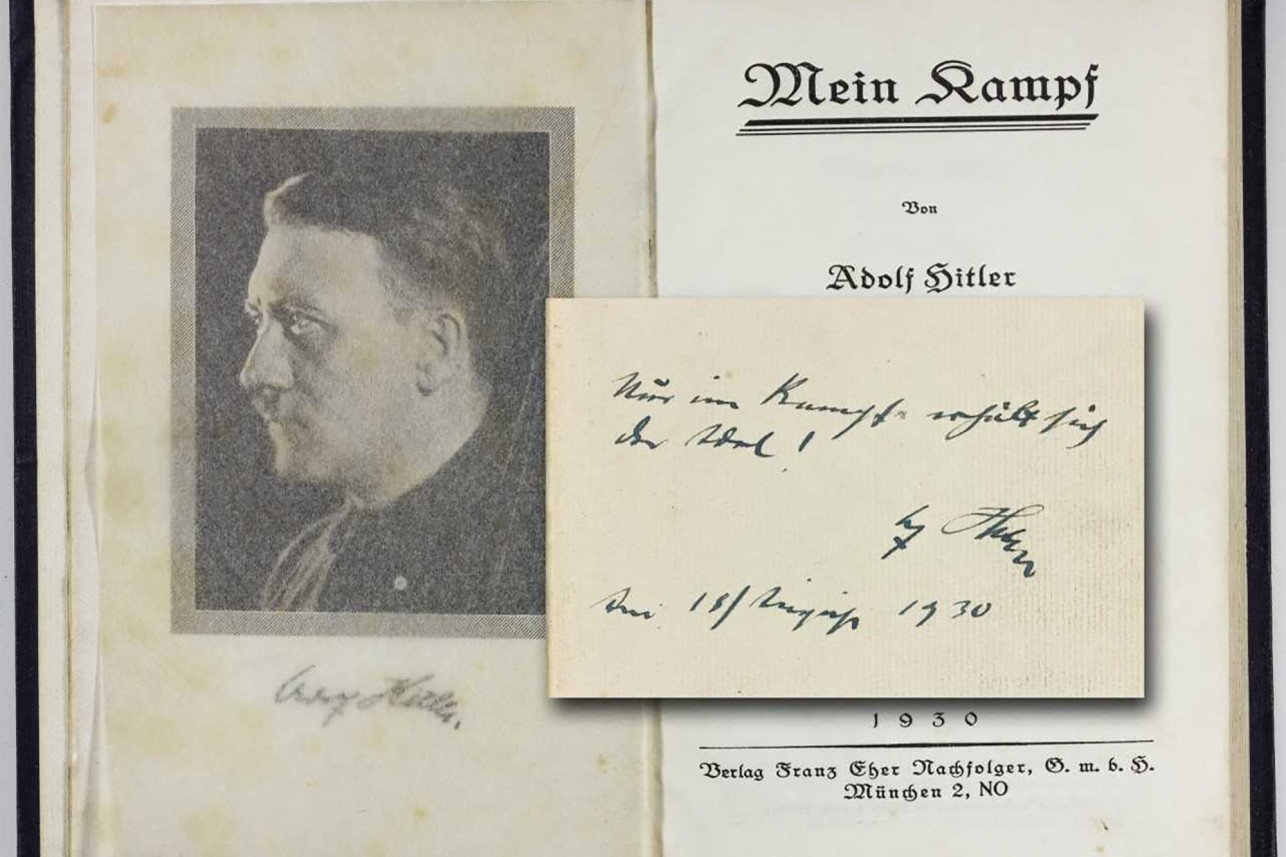 Mein Kampf
Von
Adolf Hitler
Nur im Kampf erhält sich
der
Hitler
18/August 1930
Adolf Hitler.
1930
Verlag Franz Eher Nachfolger, G. m. b. H.
München 2, NO